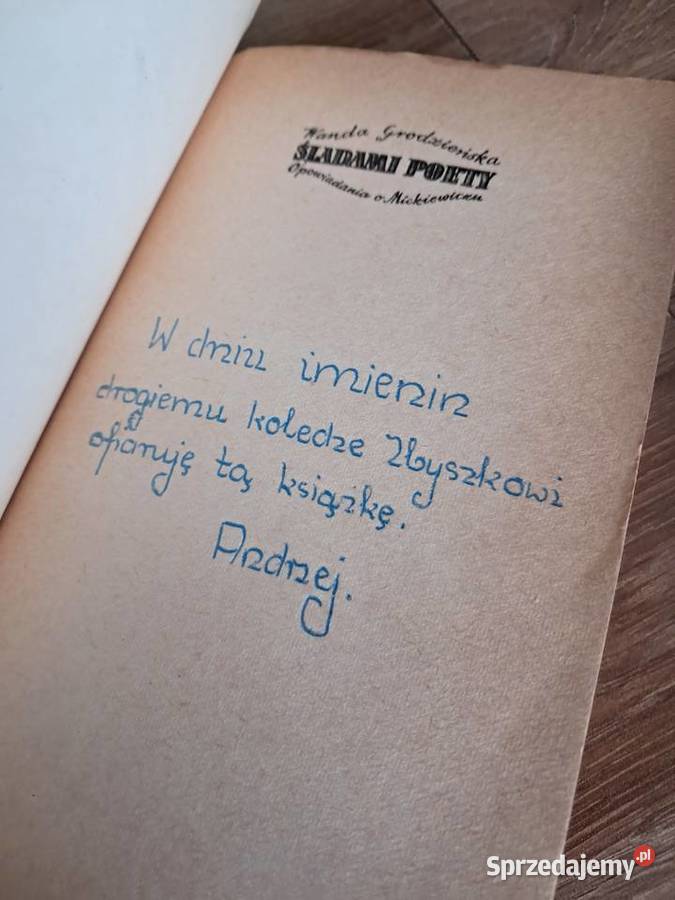 Wanda Grodzieńska
ŚLADAMI POETY
Opowiadania o Mickiewiczu
W dniu imienin
drogiemu koledze Zbyszkowi
ofiaruję tą książkę.
Andrzej.
Sprzedajemy.pl